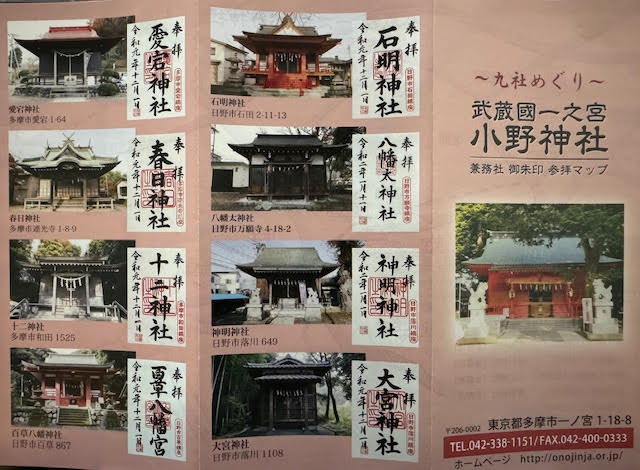 奉拝
愛宕神社
令和元年十二月一日
愛宕神社
多摩市愛宕 1-64
奉拝
春日神社
令和元年十二月一日
春日神社
多摩市連光寺 1-8-9
奉拝
十二神社
令和元年十二月一日
十二神社
多摩市和田 1525
奉拝
百草八幡宮
令和元年十二月一日
百草八幡神社
日野市百草 867
奉拝
石明神社
令和元年十二月一日
日野市石田鎮座
石明神社
日野市石田 2-11-13
奉拝
八幡大神社
日野市万願寺鎮座
八幡大神社
日野市万願寺 4-18-2
奉拝
神明神社
日野市落川鎮座
神明神社
日野市落川 649
奉拝
大宮神社
日野市落川鎮座
大宮神社
日野市落川 1108
〜九社めぐり〜
武蔵國一之宮
小野神社
兼務社 御朱印 参拝マップ
〒206-0002 東京都多摩市一ノ宮 1-18-8
TEL.042-338-1151/FAX.042-400-0333
ホームページ http://onojinja.or.jp/